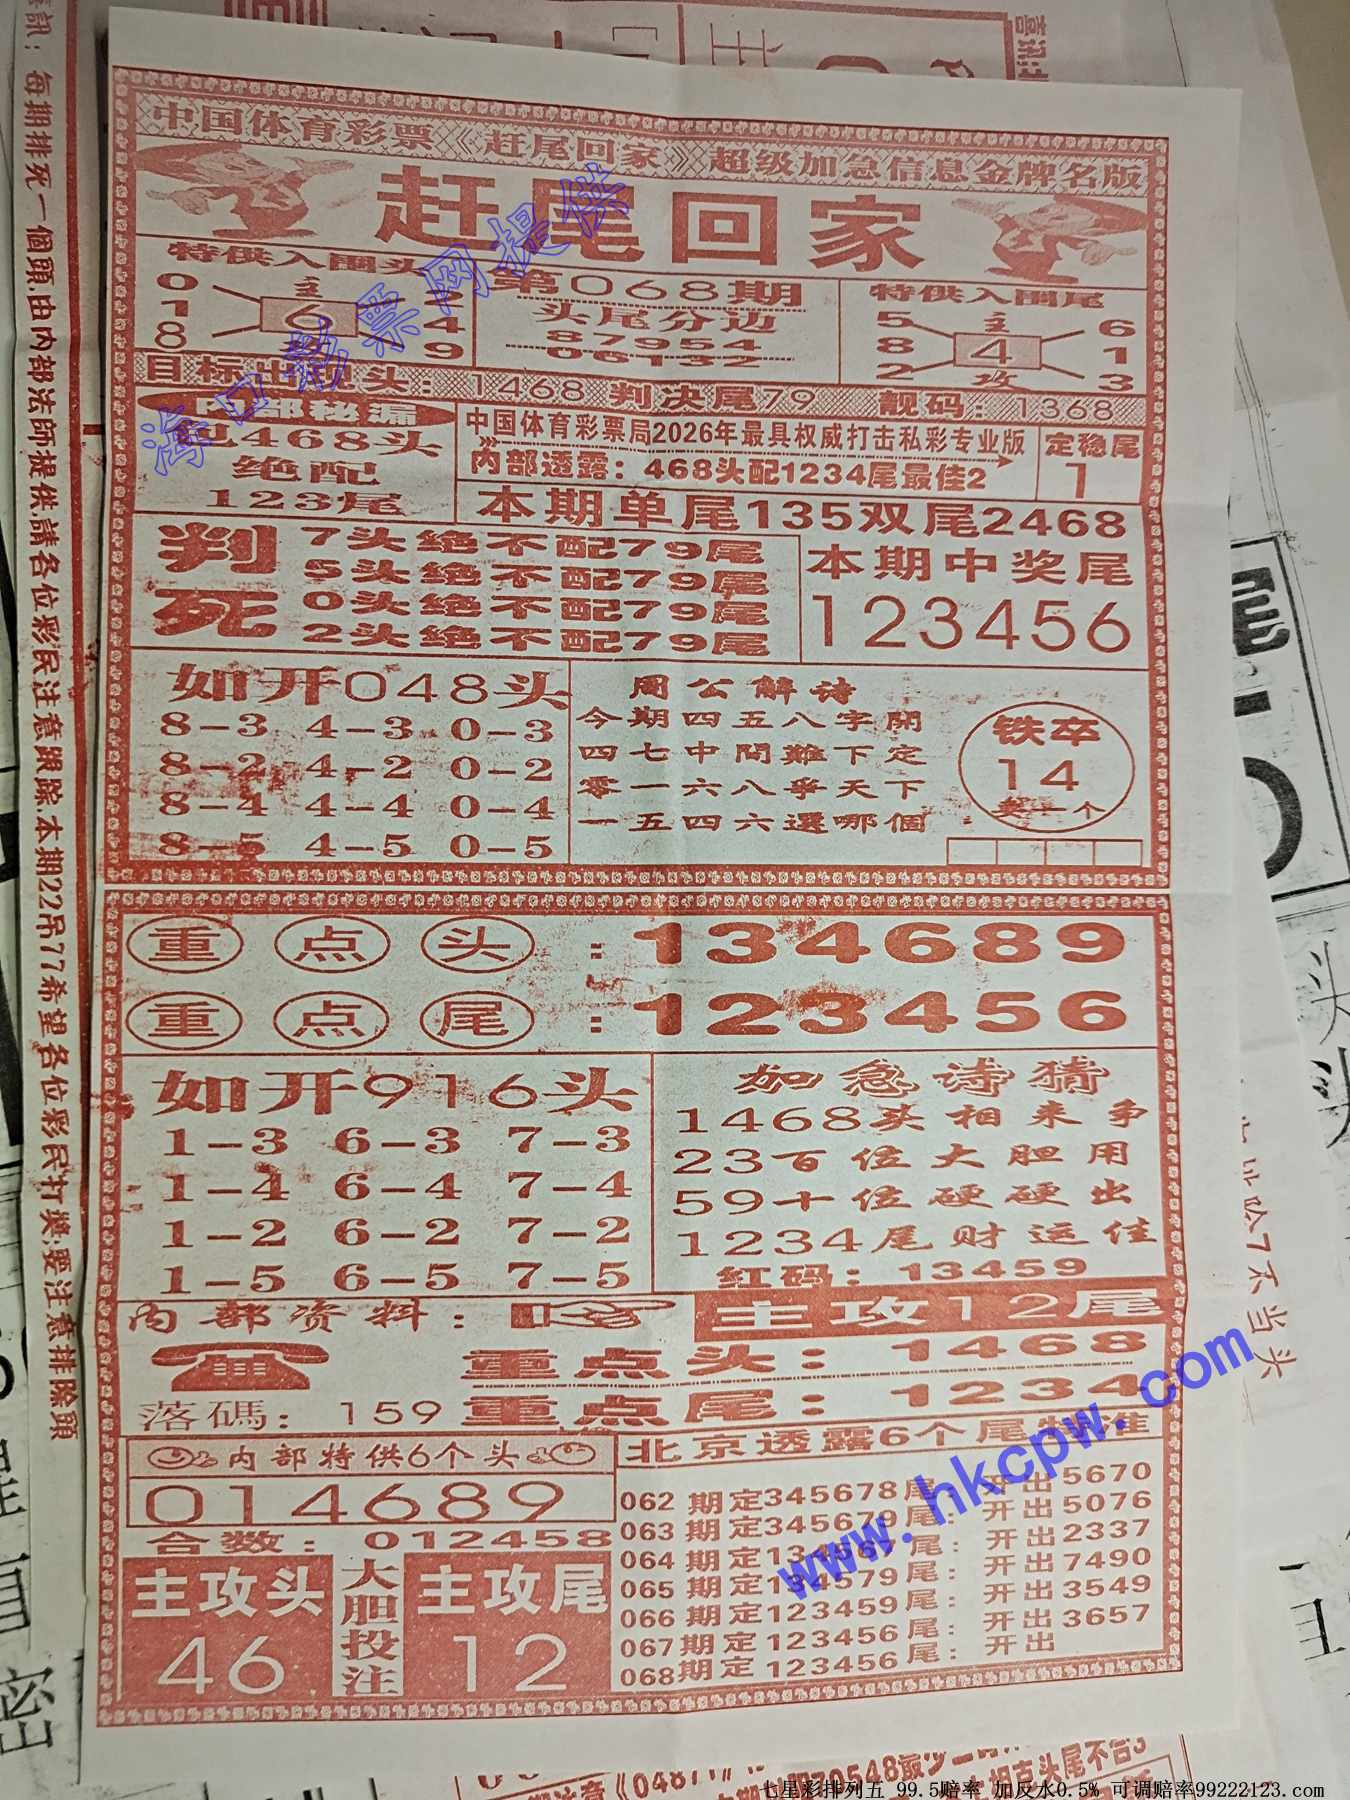 中国体育彩票《赶尾回家》超级加急信息金牌名版
赶尾回家
特供入围头
0 主
1 6 4
8 9
第068期
头尾分边
87954
06132
特供入围尾
5 主 6
8 4 1
2 攻 3
目标出 头：1468 判决尾79 靓码：1368
内部秘漏
包468头
绝配
123尾
中国体育彩票局2026年最具权威打击私彩专业版
内部透露：468头配1234尾最佳2
定稳尾
1
本期单尾135双尾2468
判死
7头绝不配79尾
5头绝不配79尾
0头绝不配79尾
2头绝不配79尾
本期中奖尾
123456
如开048头
8-3 4-3 0-3
8-2 4-2 0-2
8-4 4-4 0-4
8-5 4-5 0-5
周公解诗
今期四五八字開
四七中間難下定
零一六八爭天下
一五四六選哪個
铁卒
14
一个
重点头：134689
重点尾：123456
如开916头
1-3 6-3 7-3
1-4 6-4 7-4
1-2 6-2 7-2
1-5 6-5 7-5
加急诗猜
1468头相来争
23百位大胆用
59十位硬硬出
1234尾财运佳
红码：13459
内部资料：
主攻12尾
重点头：1468
重点尾：1234
落碼：159
内部特供6个头
014689
合数：012458
主攻头
46
大胆投注
主攻尾
12
北京透露6个尾特准
062期定345678尾：开出5670
063期定345679尾：开出5076
064期定134567尾：开出2337
065期定134579尾：开出7490
066期定123459尾：开出3549
067期定123456尾：开出3657
068期定123456尾：开出
訊：每期排死一個頭,由内部法師提供,請各位彩民注意跟踪,本期22吊77希望各位彩民打獎,要注意排除頭
海口彩票网提供
www.hkcpw.com
七星彩排列五 99.5赔率 加反水0.5% 可调赔率99222123.com